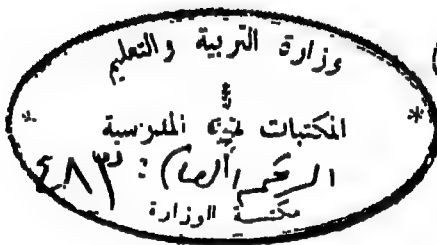 وزارة التربية والتعليم
المكتبات المدرسية
الرقم العام : ٤٨٣
مكتبة الوزارة